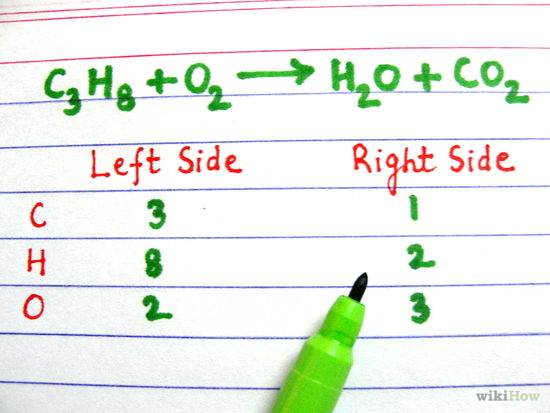 C₃H₈ + O₂ → H₂O + CO₂
Left Side Right Side
C 3 1
H 8 2
O 2 3
wikiHow